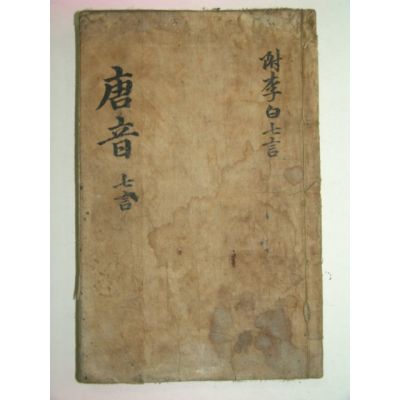 附李白七言
唐音 七言